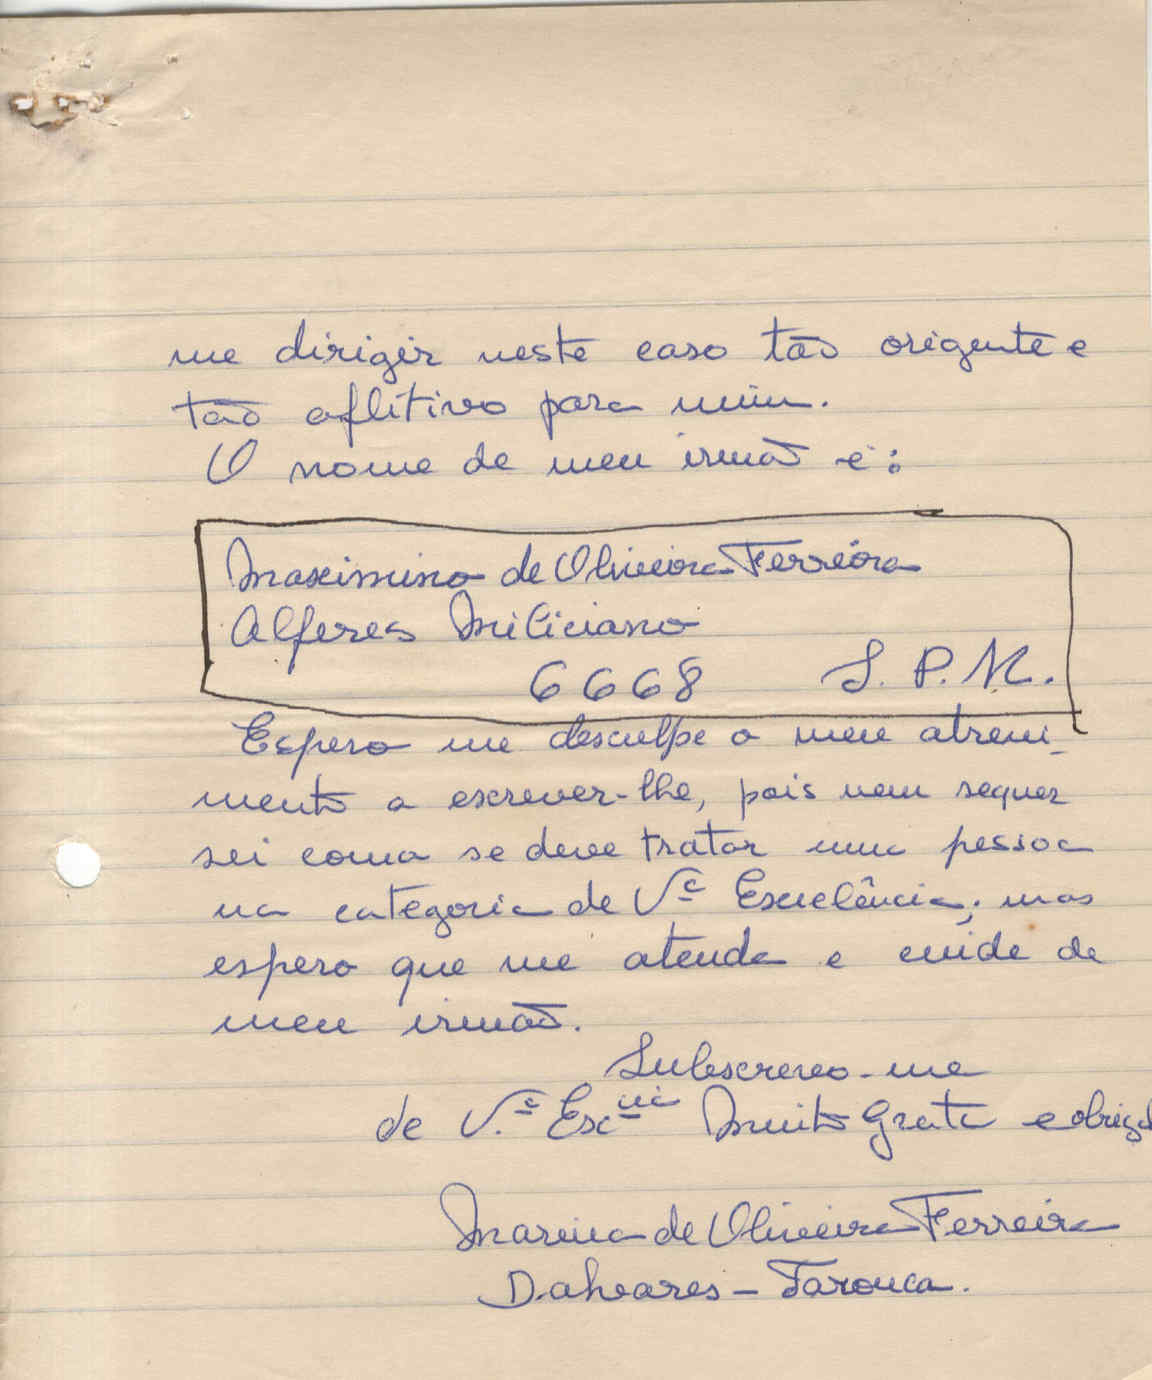 me dirigir neste caso tão origente e
tão aflitivo para mim.
O nome de meu irmão é:
Maximino de Oliveira Ferreira
Alferes Miliciano
6668 S. P. M.
Espero me desculpe o meu atrevi-
mento a escrever-lhe, pois nem sequer
sei como se deve tratar uma pessoa
na categoria de Vª Excelência; mas
espero que me atenda e cuide de
meu irmão.
Subscrevo-me
de V.ª Excia Muito Grata e obrigd
de Oliveira Ferreira
Tarouca.